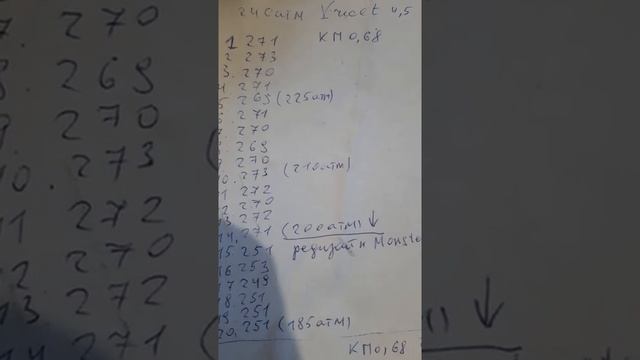 240атм Vисст 4,5
КМ0,68
1 271
2 273
3. 270
4 271
5 269 (225атм)
6. 271
7. 270
8. 269
9 270
10. 273 (210атм)
11 272
12 270
13 272
14. 271 (200атм) ↓
15 251 редизайн Monste
16 253
17 249
18. 251
19. 251
20. 251 (185атм)
КМ0,68